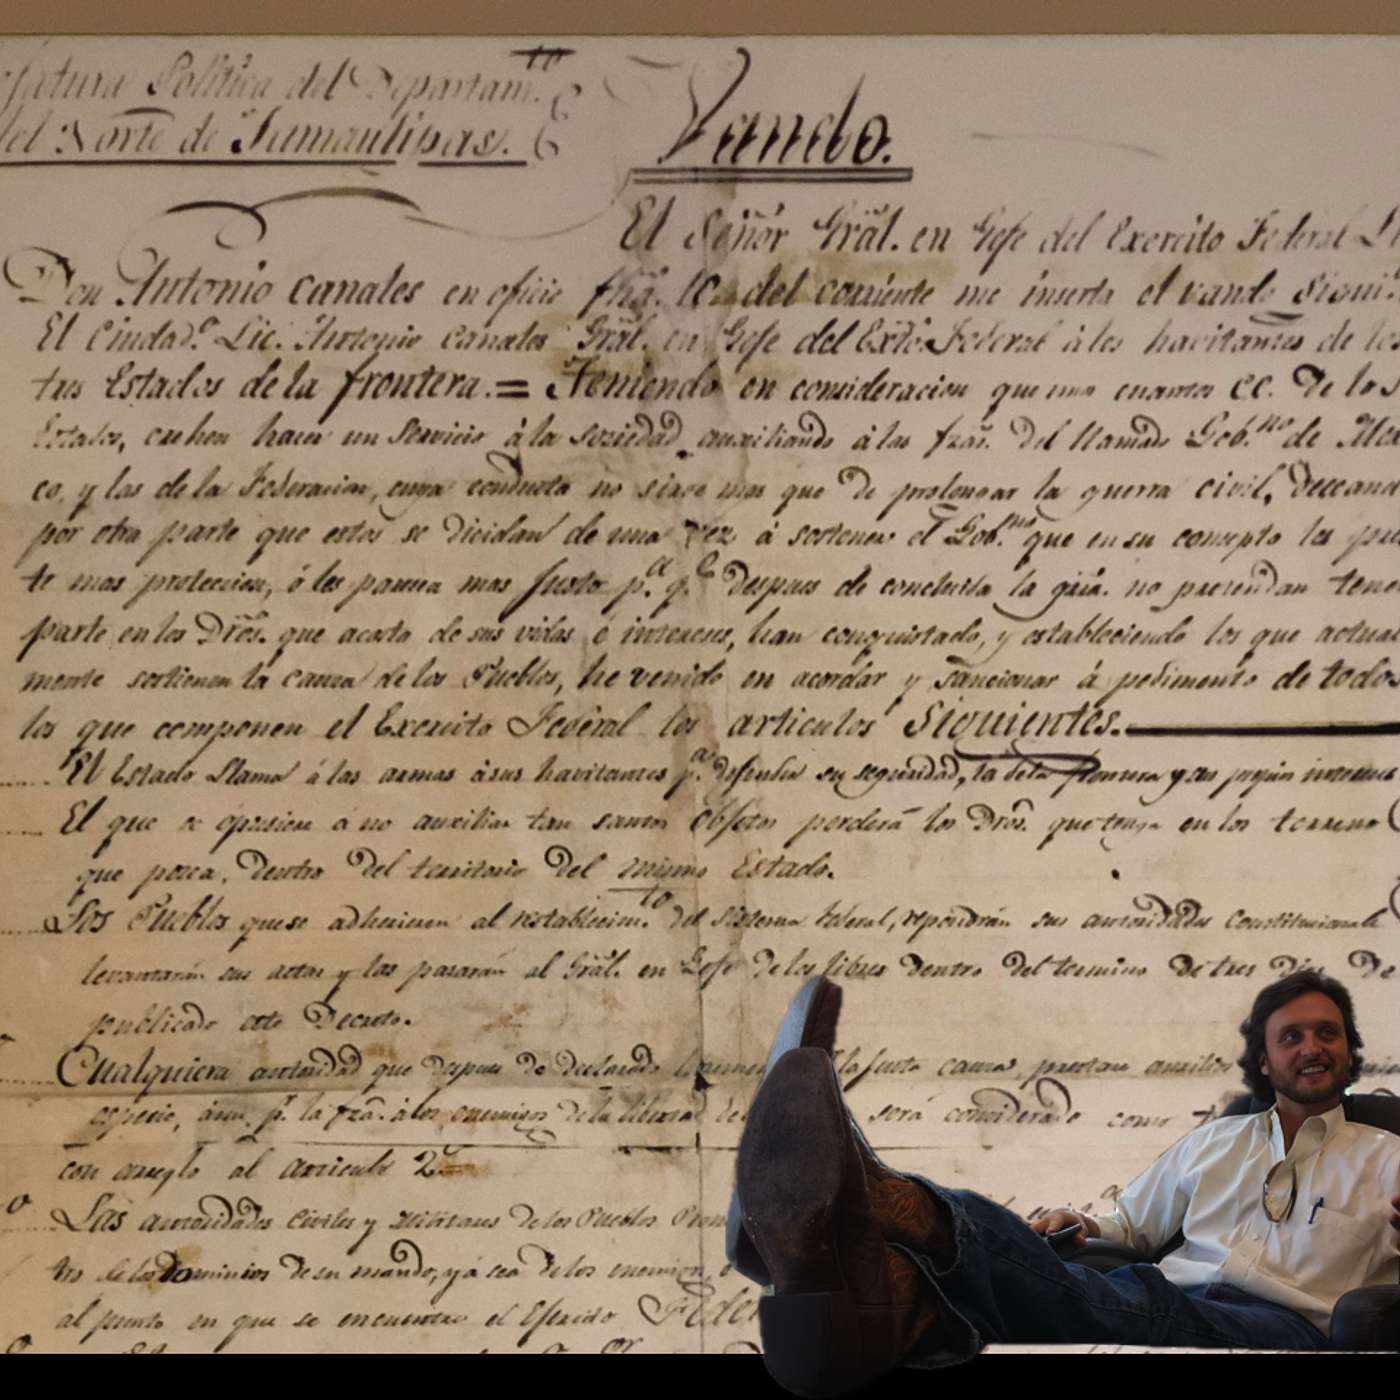 fatura Politica del Departam.to
del Norte de Tamaulipas.
Vando.
El Señór Grãl. en Gefe del Exercito Federal
Don Antonio Canales en oficio fhã. 10. del corriente me inserta el vando
El Ciudad.o Lic. Antonio Canales Grãl. en Gefe del Exto. Federal á los havitantes de los
tres Estados de la frontera.= Teniendo en consideracion que unos cuantos CC. De los
Estados, crehen hacer un Servicio á la Sosiedad auxiliando á las fzas. Del llamado Gob.no de Mex
co, y las de la Federacion, cuya conducta no sirve mas que De prolongar la guerra civil, Deceand
por otra parte que estos se Dicidan de una vez á sostener el Gob.no que en su consepto les pres
te mas proteccion, ó les paresca mas Justo p.a q.e Despues de concluida la grra. no pretendan tener
parte en los Drõs. que acosta de sus vidas é intereses, han conquistado, y estableciendo los que actual
mente sostienen la causa de los Pueblos, he venido en acordar y Sancionar á pedimento de todos
los que componen el Exercito Federal los articulos Siguientes.
El Estado Llama á las armas ásus havitantes p.a defender su seguridad, la dela frontera y sus propios intereses
El que se opusiere ó no auxilie tan santos Objetos perderá los Drõs. que tenga en los terrenos
que posea, Dentro Del territorio Del mismo Estado.
Los Pueblos que se adhieren al restablecim.to del Sistema federal, repondrán sus autoridades Constitucionale
levantarán sus actas y las pasarán al Grãl. en Gefe De los libres Dentro Del termino De tres Dias De
publicado este Decreto.
Cualquiera autoridad que Despues De Declarado la Justa causa, prestare auxilios
especie, por la fza. á los enemigos De la libertad será considerado como
con arreglo al articulo 2º
Las autoridades Civiles y Militares De los Pueblos
tro De los Dominios De su mando, yá sea De los enemigos, ó
al punto en que se encuentre el Ejercito Feder